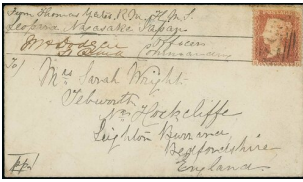 From Thomas Yates, R.M. H.M.S.
Leopard Nagasaki Japan
Officer
Commanding
To/
Mrs Sarah Wright
Tebworth
Nr Hockcliffe
Leighton Buzzard
Bedfordshire
England